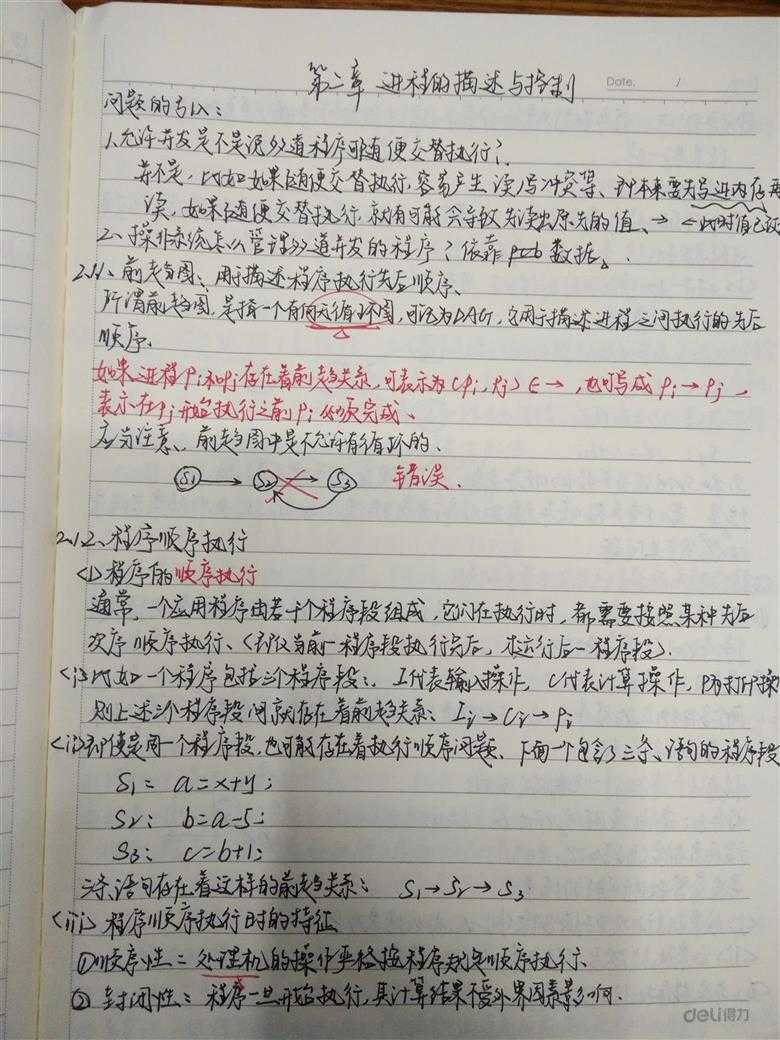 第二章 进程的描述与控制
Date. /
问题的引入:
1.允许并发是不是说多道程序可随便交替执行?
并不是,比如如果随便交替执行,容易产生读/写冲突等、即本来要先写进内存再
读,如果随便交替执行,就有可能会导致先读出原先的值、→ ←此时值已
2、操作系统怎么管理多道并发的程序?依靠pcb数据。
2.1.1、前趋图:用于描述程序执行先后顺序、
所谓前趋图,是指一个有向无循环图,可记为DAG,它用于描述进程之间执行的先后
顺序.
如果进程Pi和Pj存在着前趋关系,可表示为(Pi, Pj) ∈→,也可写成 Pi→Pj,
表示在Pj开始执行之前Pi必须完成、
应当注意、前趋图中是不允许有循环的、
S1 S2 S3 错误.
2.1.2、程序顺序执行
<1>程序的顺序执行
通常,一个应用程序由若干个程序段组成,它们在执行时,都需要按照某种先后
次序顺序执行、(即仅当前一程序段执行完后,才运行后一程序段).
<i>比如一个程序包括三个程序段:、I代表输入操作,C代表计算操作,P为打印操
则上述三个程序段间就存在着前趋关系: Ii→Ci→Pi
<ii>即使是同一个程序段,也可能存在着执行顺序问题、下面一个包含了三条、语句的程序段
S1= a=x+y;
S2: b=a-5;
S3: c=b+1;
三条语句存在着这样的前趋关系: S1→S2→S3
<iii>程序顺序执行时的特征
①顺序性:处理机的操作严格按程序规定顺序执行、
② 封闭性:程序一旦开始执行,其计算结果不受外界因素影响.
deli得力